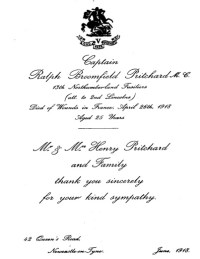 Captain
Ralph Broomfield Pritchard M.C.
13th Northumberland Fusiliers
(att. to 2nd Lincolns)
Died of Wounds in France: April 26th, 1918
Aged 25 Years
Mr & Mrs Henry Pritchard
and Family
thank you sincerely
for your kind sympathy.
42 Queen's Road,
Newcastle-on-Tyne.
June, 1918.